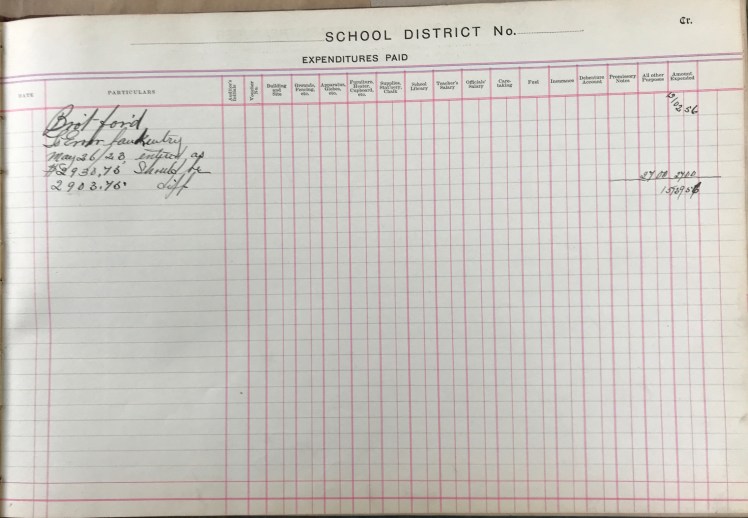 Cr.
SCHOOL DISTRICT No.
EXPENDITURES PAID
DATE PARTICULARS Auditor's Initials Voucher No. Building and Site Grounds, Fencing, etc. Apparatus, Globes, etc. Furniture, Heater, Cupboard, etc. Supplies, Stat'nery, Chalk School Library Teacher's Salary Officials' Salary Care-taking Fuel Insurance Debenture Account Promissory Notes All other Purposes Amount Expended
Bro't for'd 02.56
To Error bank entry
May 26/23, entered as
$2930.75 Should be 27 00 27 00
2903.75. diff